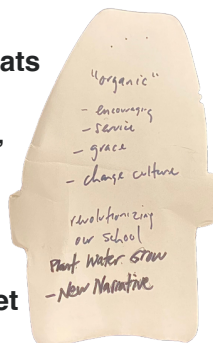 ats
. . .
"organic"
- encouraging
- service
,
- grace
- change culture
revolutionizing
our school
Plant Water Grow
et
- New Narrative